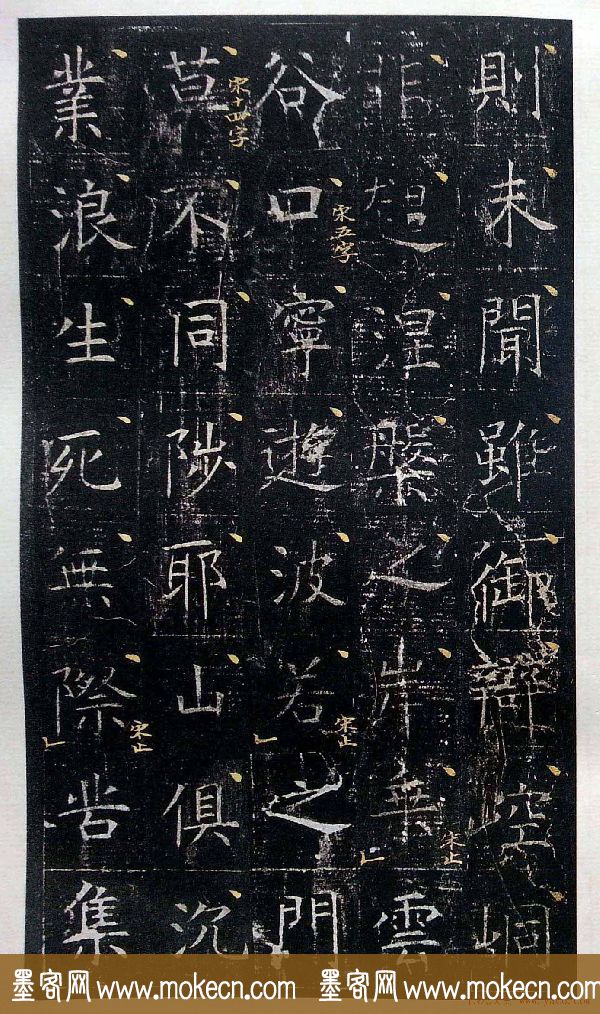 則未聞雖御辯崆峒
非超涅槃之岸乗雲
宋止
谷口寧遊波若之門
宋五字
宋止
莫不同陟耶山俱沉
宋十四字
業浪生死無際苦集
宋止
墨客网 www.mokecn.com 墨客网 www.mokecn.com